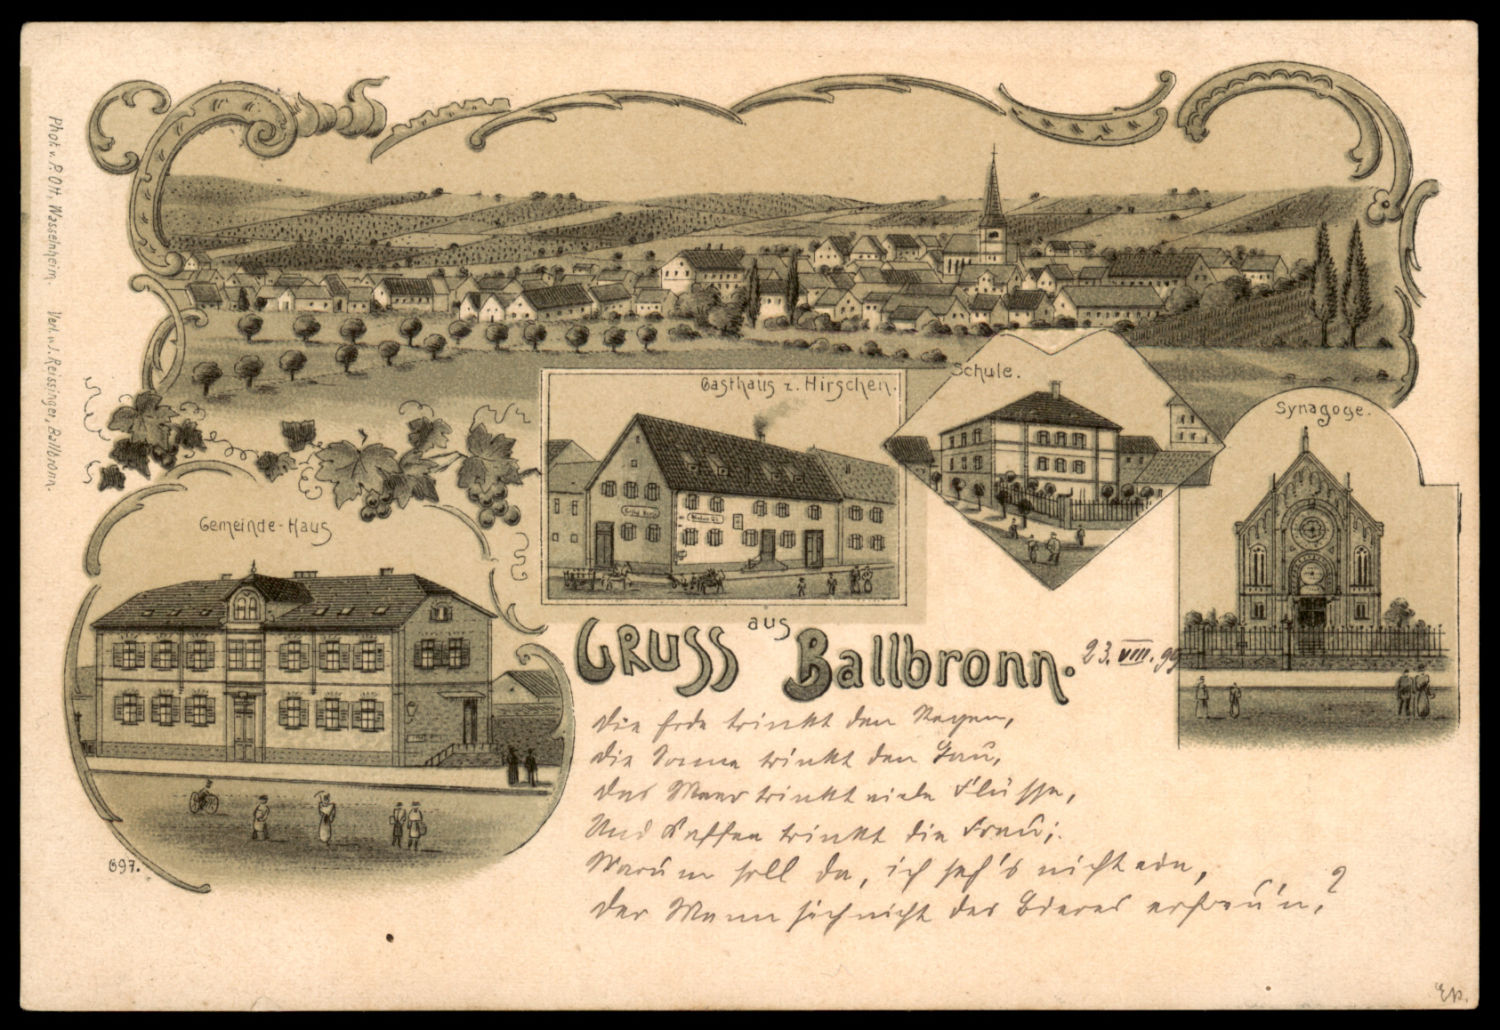 Phot. v. P. Ott, Wasselnheim. Verl. v. J. Reissinger, Ballbronn.
Gasthaus z. Hirschen.
Schule.
Synagoge.
Gemeinde-Haus
GRUSS aus Ballbronn.
23. VIII. 99
Die Erde trinkt den Regen,
die Sonne trinkt den Tau,
das Meer trinkt viele Flüsse,
Und Kaffee trinkt die Frau;
Warum soll da, ich seh's nicht ein,
der Mann sich nicht des Bieres erfreu'n?
697.